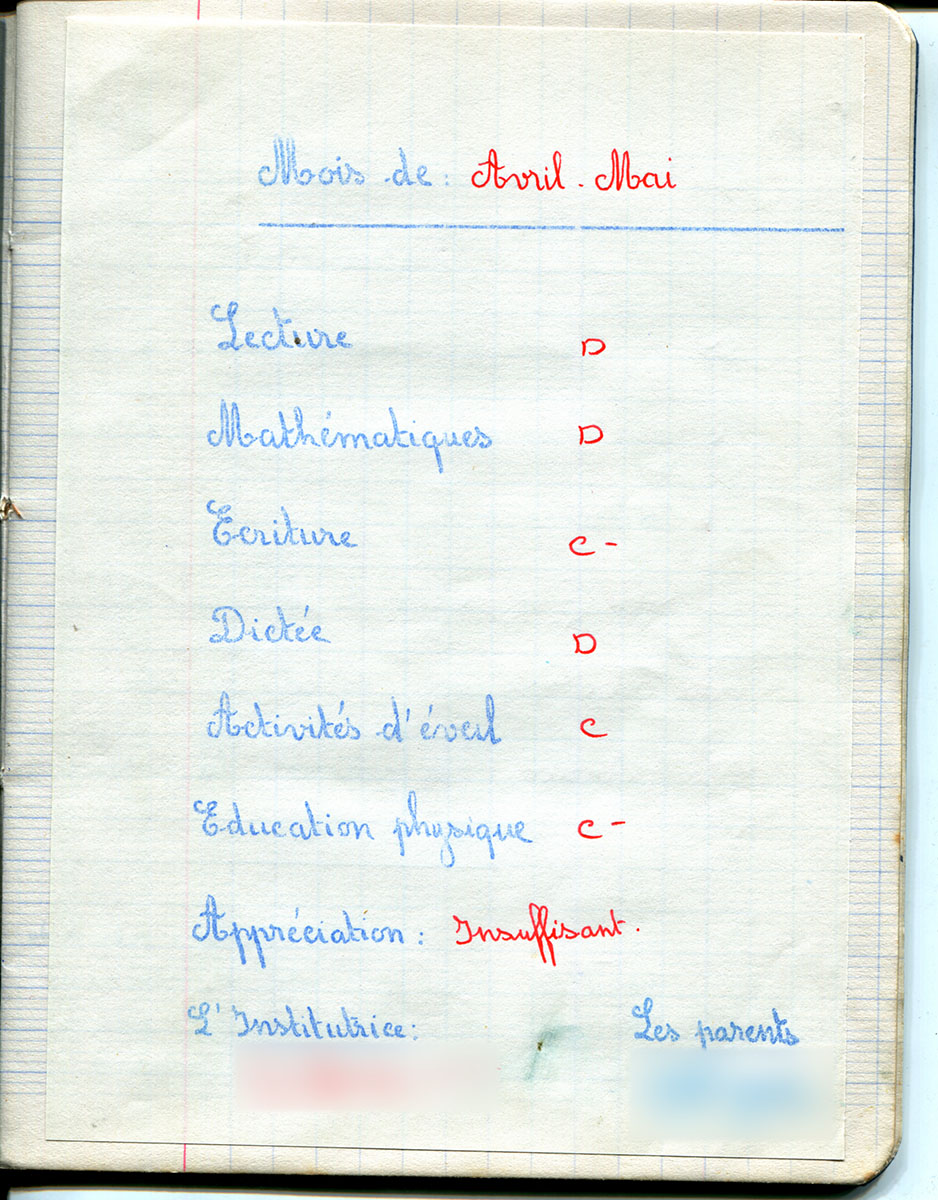 Mois de : Avril - Mai
Lecture D
Mathématiques D
Ecriture C -
Dictée D
Activités d'éveil C
Education physique C -
Appréciation : Insuffisant.
L'Institutrice : Les parents